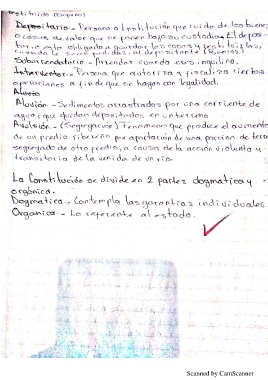 Depositario.- Persona o Institución que cuida de los bienes
o cosas de valor que se ponen bajo su custodia. El deposi-
tario esta obligado a guardar las cosas y restituirlas,
cuando le sean pedidas al depositante
Subarrendatario.- Arrendar cuando esres inquilino.
Interventor.- Persona que autoriza y fiscaliza ciertas
operaciones a fin de que se hagan con legalidad.
Aluvio
Aluvión.- Sedimentos arrastrados por una corriente de
agua, que quedan depositados en un terreno
Avulsión.- (Segregación) Fenomeno que produce el aumento
de un predio ribereño por aportación de una porcion de tierra
segregada de otro predio, a causa de la acción violenta y
transitoria de la venida de un río.
La Constitución se divide en 2 partes dogmatica y
orgánica.
Dogmatica.- Contempla las garantias individuales
Organica.- Lo referente al estado.
Scanned by CamScanner